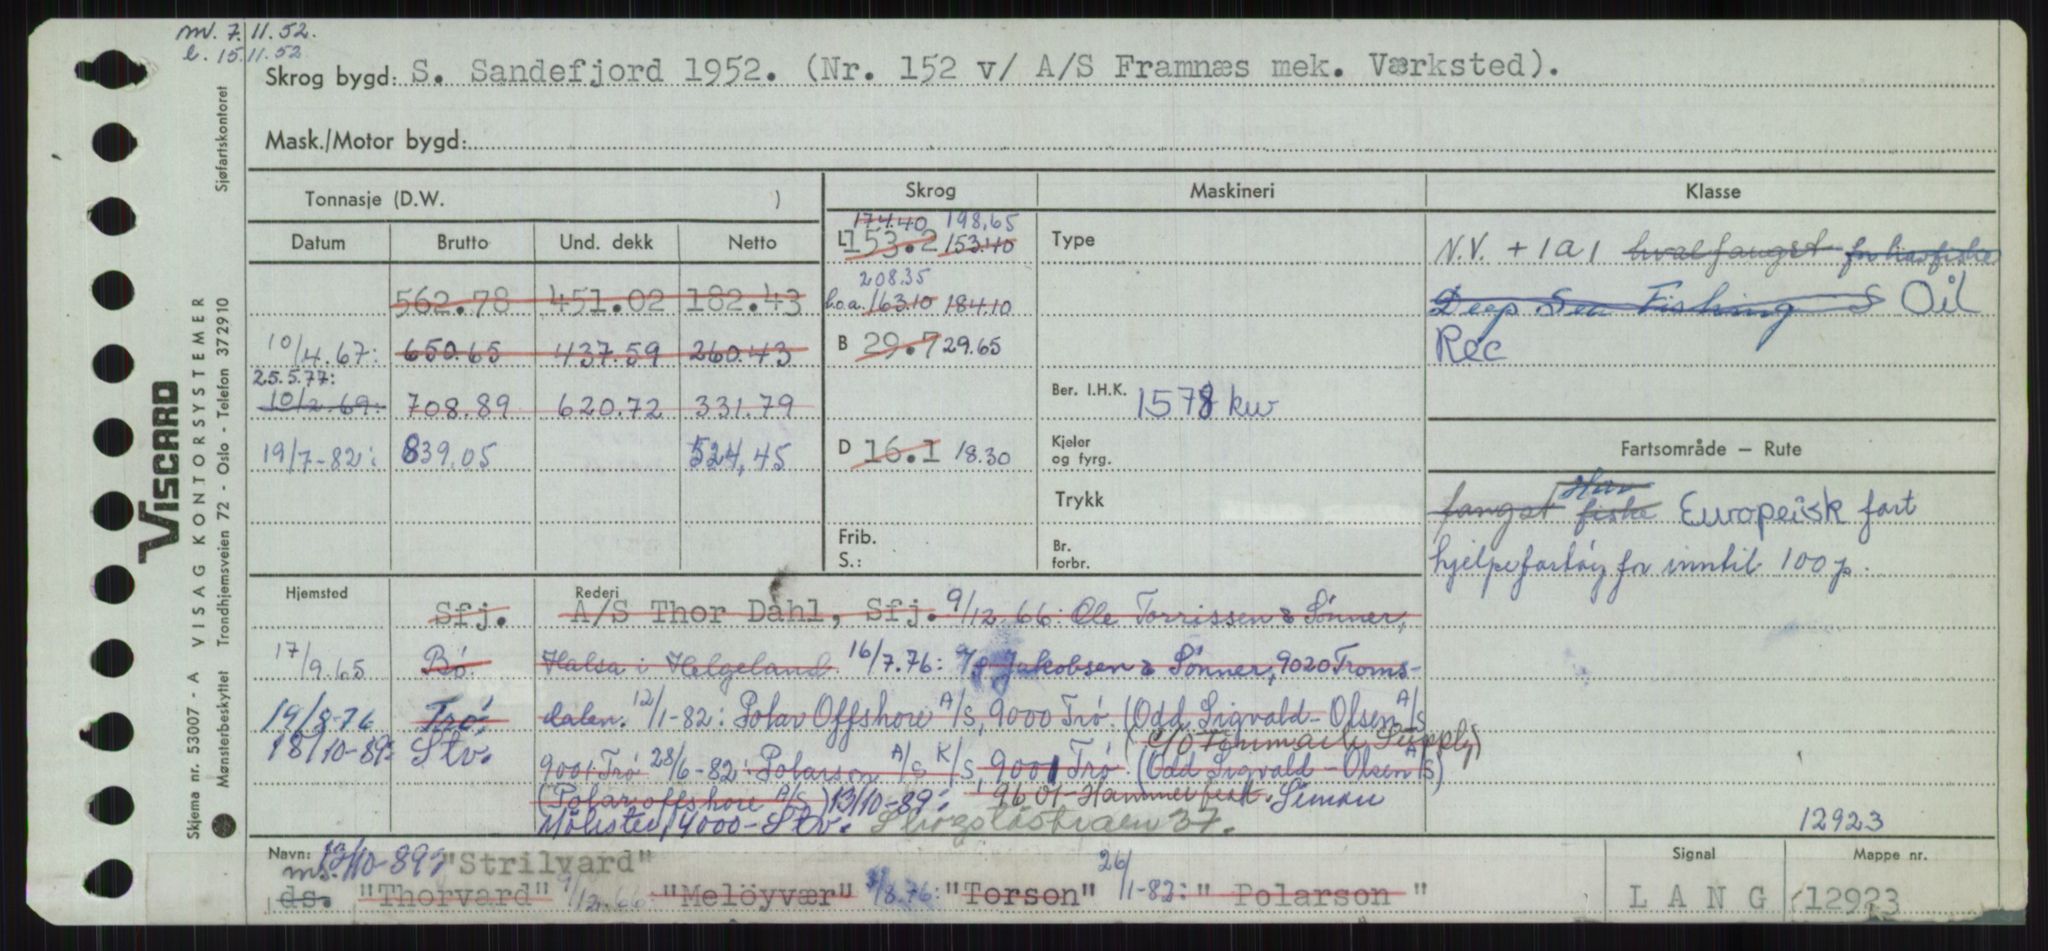 m. 7.11.52.
l. 15.11.52
Skrog bygd: S. Sandefjord 1952. (Nr. 152 v/ A/S Framnæs mek. Værksted).
Mask./Motor bygd:
Tonnasje (D.W. ) Skrog Maskineri Klasse
Datum Brutto Und. dekk Netto
174.40 198,65
L 153.2 153.40 Type
562.78 451.02 182.43
208.35
l.o.a. 163.10 184.10
10/4.67: 650.65 437.59 260.43
B 29.7 29.65
25.5.77:
10/2.69: 708.89 620.72 331.79
Ber. I.H.K. 1578 kw
19/7-82: 839.05 524,45
D 16.1 18.30
Kjeler og fyrg.
Trykk
Frib.
S.:
Br. forbr.
N.V. + 1A1 hvalfangst for havfiske
Deep Sea Fishing S Oil
Rec
Fartsområde – Rute
fangst Hav fiske Europeisk fart
hjelpefartøy for inntil 100 p.
Hjemsted Rederi
Sfj. A/S Thor Dahl, Sfj. 9/12.66: Ole Torrissen & Sønner,
17/9.65 Bø Halsa i Helgeland 16/7.76: Jakobsen & Sønner, 9020 Troms-
19/8-76 Trø. dalen. 12/1-82: Polar Offshore A/S, 9000 Trø. (Odd Sigvald-Olsen A/S
C/O Finmark Supply)
18/10-89: Stv. 9001 Trø 28/6-82: Polarson A/S K/S, 9001 Trø. (Odd Sigvald-Olsen A/S)
(Polar offshore A/S) 13/10-89: 9601-Hammerfest. Simon
Møkster, 4000-Stv. Skogstøstraen 37.
12923
Navn: 13/10-89: "Strilvard"
ms.
ds. "Thorvard" 9/12.66 "Melöyvær" /8.76: "Torson" 26/1-82: " Polarson "
Signal
L A N G
Mappe nr.
12923
VISCARD
VISAG KONTORSYSTEMER
Skjema nr. 53007 - A
Mønsterbeskyttet Trondhjemsveien 72 - Oslo - Telefon 372910 Sjøfartskontoret